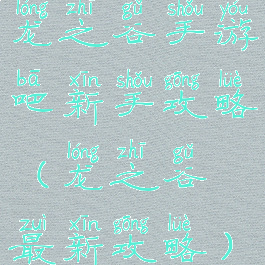 lóng zhī gǔ shǒu yóu
龙之谷手游
bā xīn shǒu gōng lüè
吧新手攻略
lóng zhī gǔ
（龙之谷
zuì xīn gōng lüè
最新攻略）